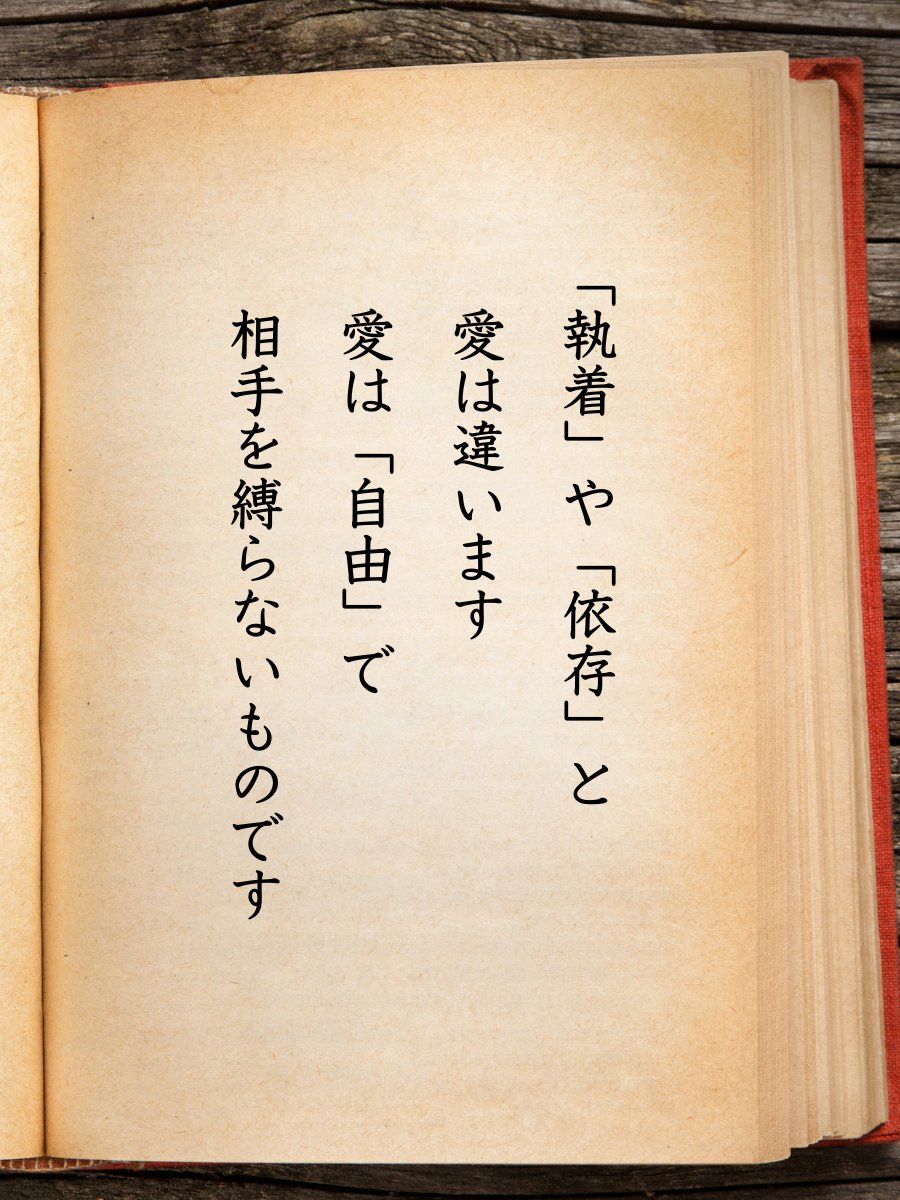 「執着」や「依存」と
愛は違います
愛は「自由」で
相手を縛らないものです